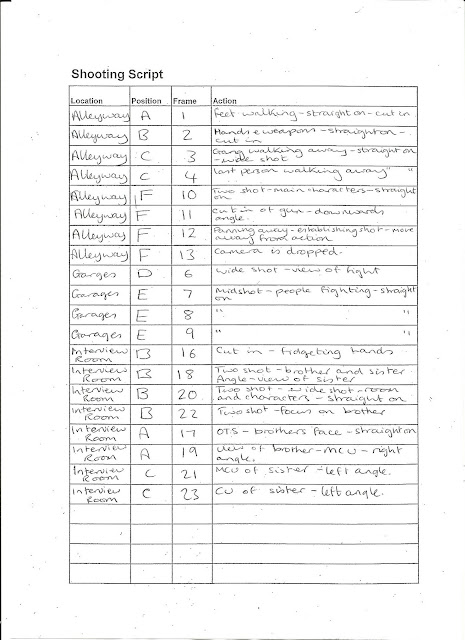 Shooting Script
Location Position Frame Action
Alleyway A 1 Feet walking - straight on - cut in
Alleyway B 2 Hands & weapons - straight on -
cut in
Alleyway C 3 Gang walking away - straight on
- wide shot
Alleyway C 4 last person walking away " "
Alleyway F 10 Two shot - main characters - straight
on.
Alleyway F 11 Cut in of gun - downwards
angle.
Alleyway F 12 Panning away - establishing shot - move
away from action
Alleyway F 13 Camera is dropped.
Garges D 6 Wide shot - view of fight
Garages E 7 Midshot - people fighting - straight
on
Garages E 8 " "
Garages E 9 " "
Interview
Room B 16 Cut in - fidgeting hands
Interview
Room B 18 Two shot - brother and sister
Angle - view of sister
Interview
Room B 20 Two shot - wide shot - room
and characters - straight on.
Interview
Room B 22 Two shot - focus on brother
Interview
Room A 17 OTS - brothers face - straight on
Interview
Room A 19 View of brother - MCU - right
angle.
Interview
Room C 21 MCU of sister - left angle.
Interview
Room C 23 CU of sister - left angle.